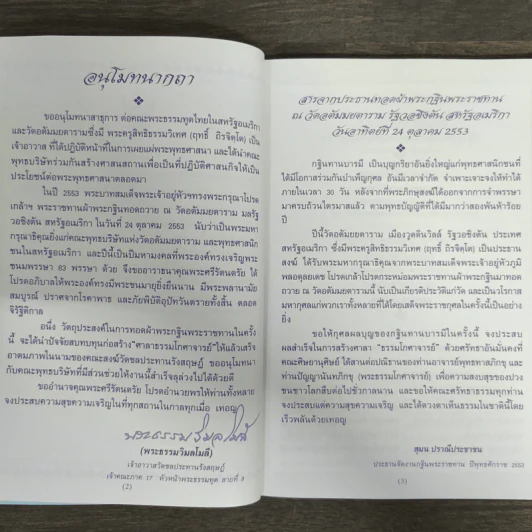 อนุโมทนากถา
ขออนุโมทนาสาธุการ ต่อคณะพระธรรมทูตไทยในสหรัฐอเมริกา
และวัดอตัมมยตารามซึ่งมี พระครูสิทธิธรรมวิเทศ (ฤทธิ์ ถิรจิตโต) เป็น
เจ้าอาวาส ที่ได้ปฏิบัติหน้าที่ในการเผยแผ่พระพุทธศาสนา และได้นำคณะ
พุทธบริษัทร่วมกันสร้างศาสนสถานเพื่อเป็นที่ปฏิบัติศาสนกิจให้เป็น
ประโยชน์ต่อพระพุทธศาสนาตลอดมา
ในปี 2553 พระบาทสมเด็จพระเจ้าอยู่หัวฯทรงพระกรุณาโปรด
เกล้าฯ พระราชทานผ้าพระกฐินทอดถวาย ณ วัดอตัมมยตาราม มลรัฐ
วอชิงตัน สหรัฐอเมริกา ในวันที่ 24 ตุลาคม 2553 นับว่าเป็นพระมหา
กรุณาธิคุณยิ่งแก่คณะพุทธบริษัทแห่งวัดอตัมมยตาราม และพุทธศาสนิก
ชนในสหรัฐอเมริกา และปีนี้เป็นปีมหามงคลที่พระองค์ทรงเจริญพระ
ชนมพรรษา 83 พรรษา ด้วย จึงขออาราธนาคุณพระศรีรัตนตรัย ได้
โปรดอภิบาลให้พระองค์ทรงมีพระชนมายุยิ่งยืนนาน มีพระพลานามัย
สมบูรณ์ ปราศจากโรคาพาธ และภัยพิบัติอุปัทวันตรายทั้งสิ้น ตลอด
จิรัฐิติกาล
อนึ่ง วัตถุประสงค์ในการทอดผ้าพระกฐินพระราชทานในครั้ง
นี้ จะได้นำปัจจัยสมทบทุนก่อสร้าง"ศาลาธรรมโกศาจารย์"ให้แล้วเสร็จ
อาตมภาพในนามของคณะสงฆ์วัดชลประทานรังสฤษฏ์ ขออนุโมทนา
กับคณะพุทธบริษัทที่มีส่วนช่วยให้งานนี้สำเร็จลุล่วงไปได้ด้วยดี
ขออำนาจคุณพระศรีรัตนตรัย โปรดอำนวยพรให้ท่านทั้งหลาย
จงประสบความสุขความเจริญในที่ทุกสถานในกาลทุกเมื่อ เทอญ
พระธรรมวิมลโมลี
(พระธรรมวิมลโมลี)
เจ้าอาวาสวัดชลประทานรังสฤษฏ์
เจ้าคณะภาค 17 หัวหน้าพระธรรมทูต สายที่ 8
(2)
สารจากประธานทอดผ้าพระกฐินพระราชทาน
ณ วัดอตัมมยตาราม รัฐวอชิงตัน สหรัฐอเมริกา
วันอาทิตย์ที่ 24 ตุลาคม 2553
กฐินทานบารมี เป็นบุญกริยาอันยิ่งใหญ่แก่พุทธศาสนิกชนที่
ได้มีโอกาสร่วมกันบำเพ็ญกุศล อันมีเวลาจำกัด จำเพาะเจาะจงให้ทำได้
ภายในเวลา 30 วัน หลังจากที่พระภิกษุสงฆ์ได้ออกจากการจำพรรษา
มาครบถ้วนไตรมาสแล้ว ตามพุทธบัญญัติที่ได้มีมากว่าสองพันห้าร้อย
ปี
ปีนี้วัดอตัมมยตาราม เมืองวูดดินวิลล์ รัฐวอชิงตัน ประเทศ
สหรัฐอเมริกา ซึ่งมีพระครูสิทธิธรรมวิเทศ (ฤทธิ์ ถิรจิตโต) เป็นประธาน
สงฆ์ ได้รับพระมหากรุณาธิคุณจากพระบาทสมเด็จพระเจ้าอยู่หัวภูมิ
พลอดุลยเดช โปรดเกล้าโปรดกระหม่อมพระราชทานผ้าพระกฐินมาทอด
ถวาย ณ วัดอตัมมยตารามนี้ นับเป็นเกียรติประวัติแก่วัด และเป็นวโรกาส
มหากุศลแก่พวกเราทั้งหลายที่ได้โดยเสด็จพระราชกุศลในครั้งนี้เป็นอย่าง
ยิ่ง
ขอให้กุศลผลบุญของกฐินทานบารมีในครั้งนี้ จงประสบ
ผลสำเร็จในการสร้างศาลา "ธรรมโกศาจารย์" ด้วยศรัทธาอันมั่นคงที่
คณะศิษยานุศิษย์ ได้สานต่อปณิธานของท่านอาจารย์พุทธทาสภิกขุ และ
ท่านปัญญานันทภิกขุ (พระธรรมโกศาจารย์) เพื่อความสงบสุขของปวง
ชนชาวโลกสืบต่อไปชั่วกาลนาน และขอให้คณะศรัทธาธรรมทุกท่าน
จงประสบแต่ความสุขความเจริญ และได้ดวงตาเห็นธรรมในชาตินี้โดย
เร็วพลันด้วยเทอญ
สุมน ปราณีประชาชน
ประธานจัดงานกฐินพระราชทาน ปีพุทธศักราช 2553
(3)